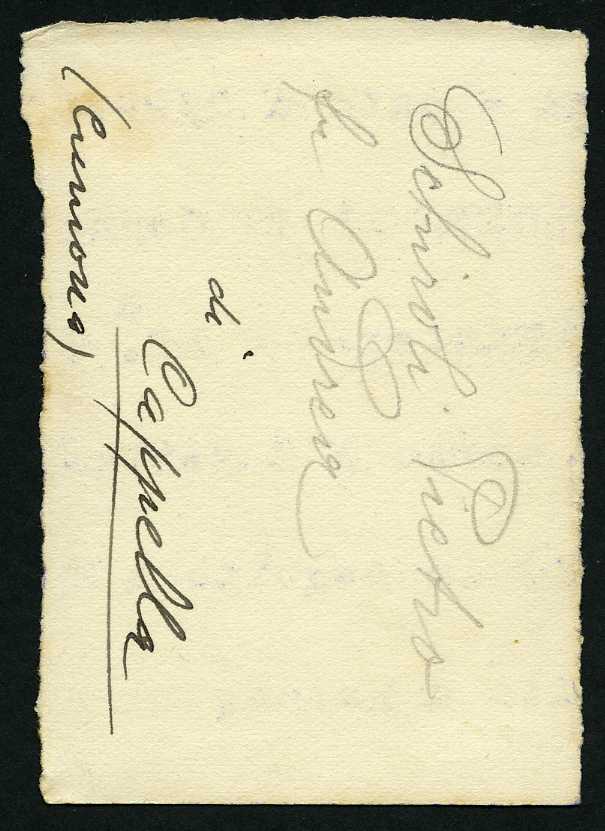 Schiroli Pietro
fu Andrea
di
Cappella
(Cremona)